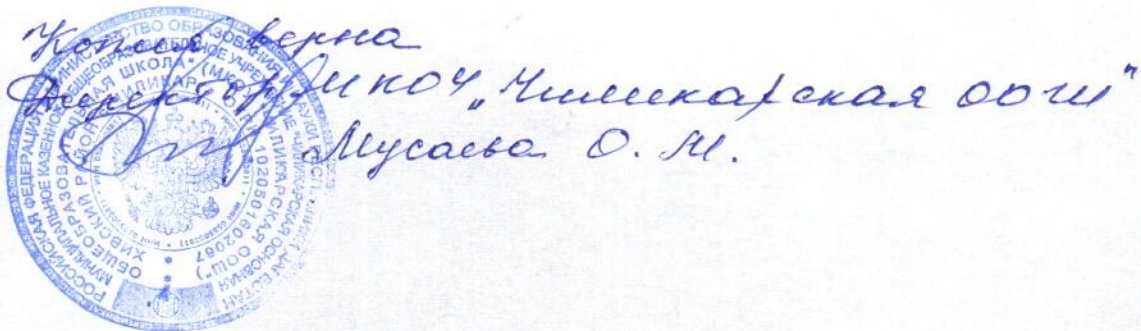 Копия верна
Директор МКОУ „Чиликарская ООШ"
Мусаева О. М.
РОССИЙСКАЯ ФЕДЕРАЦИЯ МИНИСТЕРСТВО ОБРАЗОВАНИЯ И НАУКИ
МУНИЦИПАЛЬНОЕ КАЗЕННОЕ ОБЩЕОБРАЗОВАТЕЛЬНОЕ УЧРЕЖДЕНИЕ "ЧИЛИКАРСКАЯ ОСНОВНАЯ
ОБЩЕОБРАЗОВАТЕЛЬНАЯ ШКОЛА" (МКОУ "ЧИЛИКАРСКАЯ ООШ")
ХИВСКИЙ РАЙОН
1020501802067